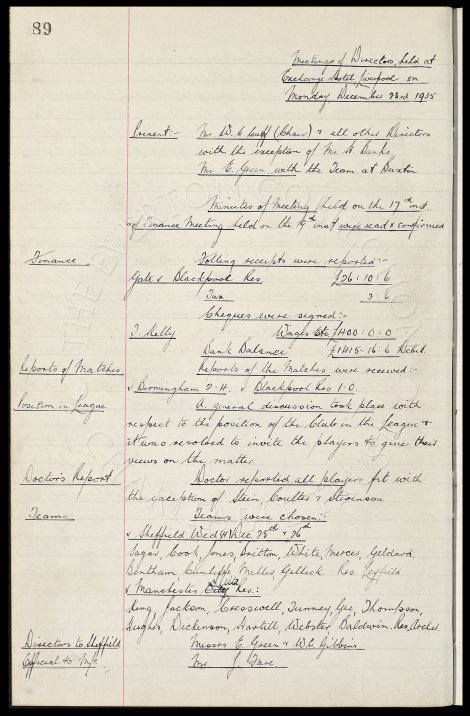 89
Meetings of Directors, held at
Exchange Hotel, Liverpool on
Monday December 23rd 1935
Present:- Mr. W. C. Cuff (Chair) & all other Directors
with the exception of Mr. A. Banks,
Mr. E. Green, with the Team at Buxton
Minutes of Meeting held on the 17th inst.
& of Finance Meeting held on the 19th inst were read & confirmed
Finance Folling receipts were reported:-
Gate v Blackpool Res. £26:10:6
Tax 2:6
Cheques were signed:-
J. Kelly Wages etc. £400:0:0
Bank Balance Debit.
Reports of Matches Reports of the Matches were received:-
v Birmingham 2.4. v Blackpool Res 1.0.
Position in League A general discussion took place with
respect to the position of the Club in the League &
it was resolved to invite the players to give their
views on the matter.
Doctor's Report Doctor reported all players fit with
the exception of Stein, Coulter & Stevenson
Teams Teams were chosen:-
v Sheffield Wed Dec. 25th & 26th
Sagar, Cook, Jones, Britton, White, Mercer, Geldard,
Bentham, Cunliffe, Miller, Gillick Res. Leyfield
v Manchester City Res:
King, Jackson, Cresswell, Tunney, Gee, Thompson,
Hughes, Dickinson, Hartill, Webster, Baldwin. Res. Archer.
Directors to Sheffield Messrs E. Green & W. C. Gibbins
Official to M/c. Mr J. Fare.
THE EVERTON COLLECTION